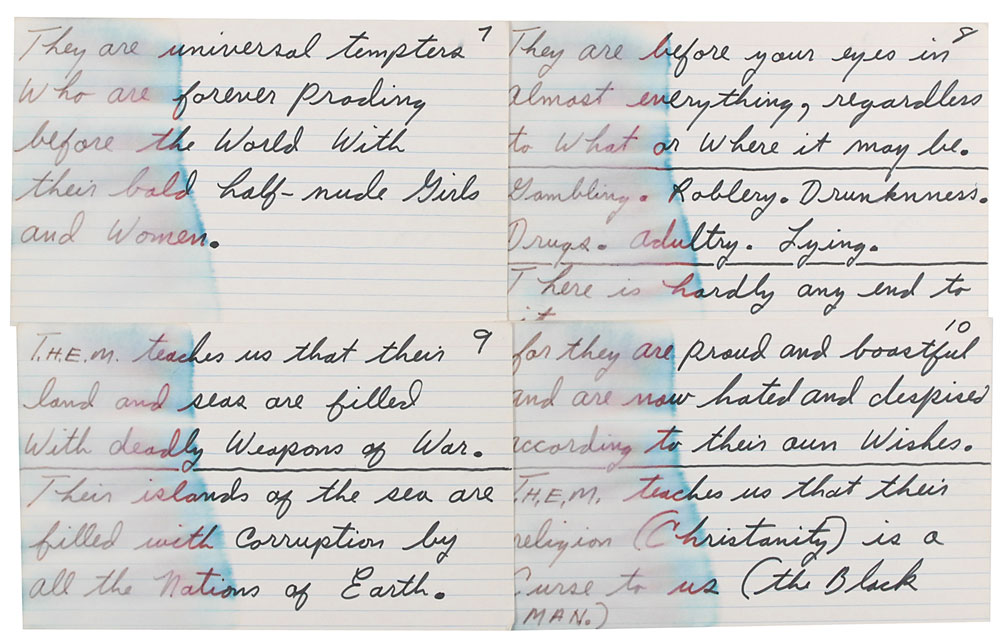 They are universal tempters 7
Who are forever Proding
before the World With
their bold half-nude Girls
and Women.
They are before your eyes in 8
almost everything, regardless
to What or Where it may be.
Gambling. Robbery. Drunknness.
Drugs. Adultry. Lying.
There is hardly any end to
it
T.H.E.M. teaches us that their 9
land and seas are filled
With deadly Weapons of War.
Their islands of the sea are
filled with Corruption by
all the Nations of Earth.
10
for they are Proud and boastful
and are now hated and despised
according to their own Wishes.
T.H.E.M. teaches us that their
religion (Christanity) is a
Curse to us (the Black
MAN.)